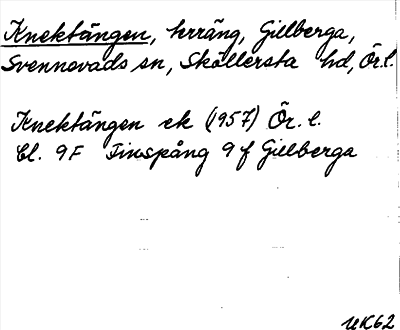 Knektängen, terräng, Gillberga,
Svennevads sn, Sköllersta hd, Ör.l.
Knektängen ek (1957) Ör. l.
Bl. 9F Finspång 9 f Gillberga
UK62